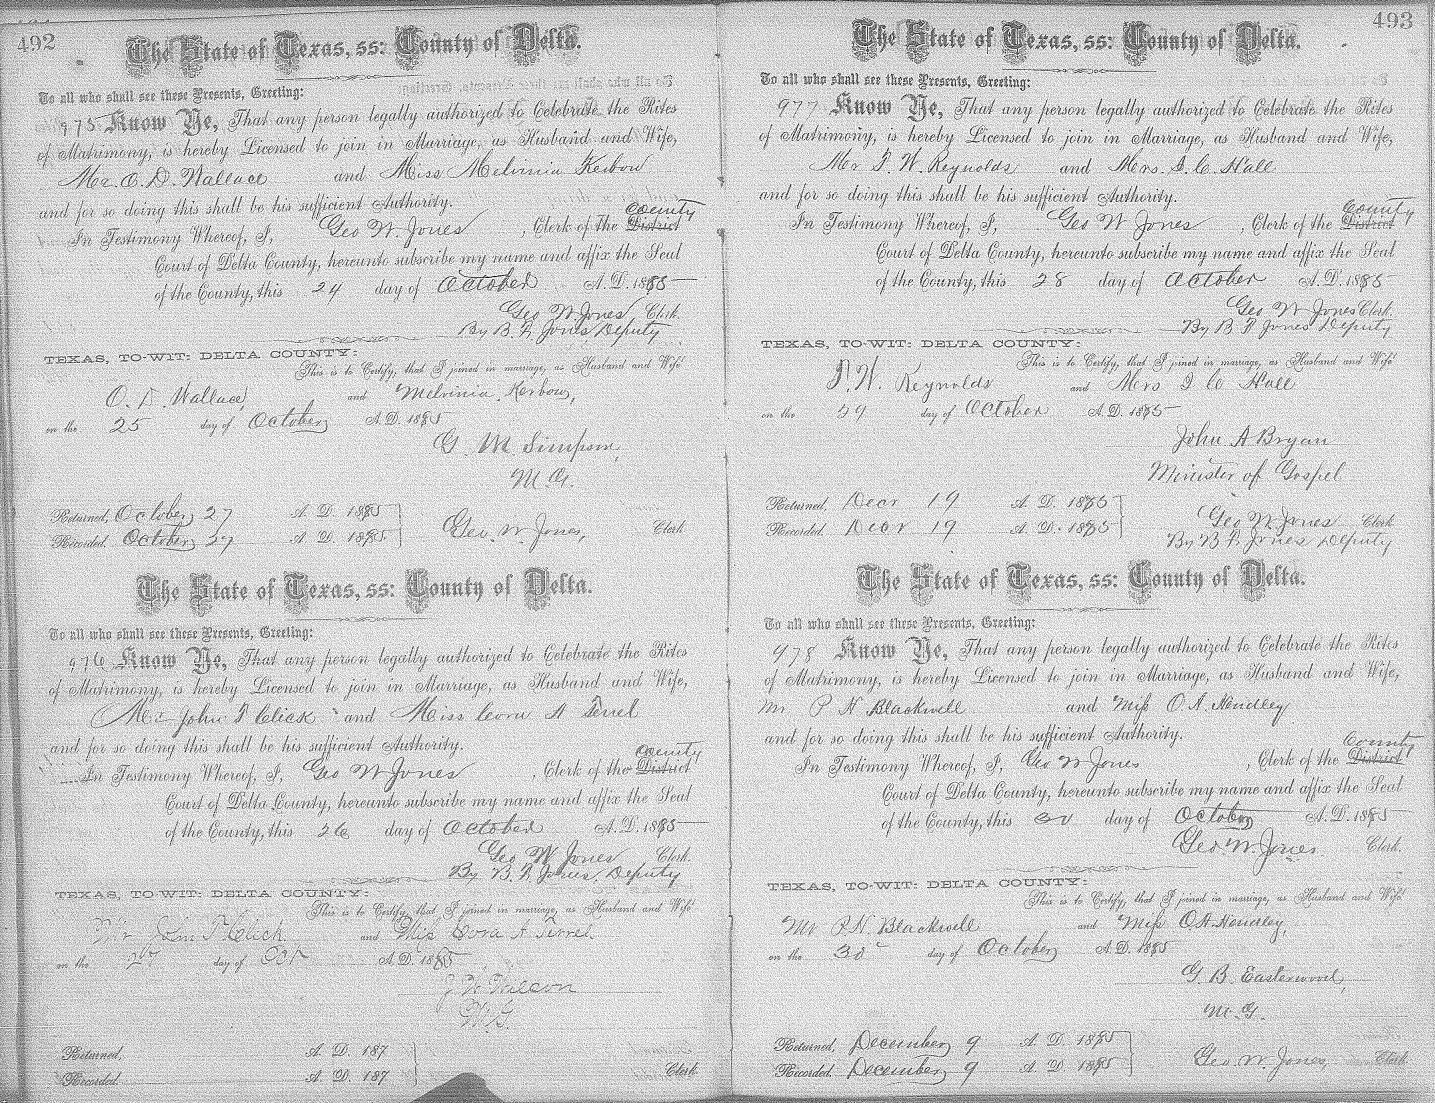 492
The State of Texas, ss: County of Delta.
To all who shall see these Presents, Greeting:
975 Know Ye, That any person legally authorized to Celebrate the Rites
of Matrimony, is hereby Licensed to join in Marriage, as Husband and Wife,
Mr. O. D. Wallace and Miss Melvinia Kerbow
and for so doing this shall be his sufficient Authority.
County
In Testimony Whereof, I, Geo W. Jones, Clerk of the District
Court of Delta County, hereunto subscribe my name and affix the Seal
of the County, this 24 day of October A. D. 1885
Geo W Jones Clerk.
By B. F. Jones Deputy
TEXAS, TO-WIT: DELTA COUNTY:
This is to Certify, that I joined in marriage, as Husband and Wife
O. D. Wallace, and Melvinia Kerbow,
on the 25 day of October A. D. 1885
G. M. Simpson,
M. G.
Returned, October 27 A. D. 1885
Recorded. October 27 A. D. 1885 Geo. W. Jones, Clerk
The State of Texas, ss: County of Delta.
To all who shall see these Presents, Greeting:
976 Know Ye, That any person legally authorized to Celebrate the Rites
of Matrimony, is hereby Licensed to join in Marriage, as Husband and Wife,
Mr John T Click and Miss Cora A Terrel
and for so doing this shall be his sufficient Authority.
County
In Testimony Whereof, I, Geo W Jones, Clerk of the District
Court of Delta County, hereunto subscribe my name and affix the Seal
of the County, this 26 day of October A. D. 1885
Geo W Jones Clerk.
By B. F. Jones, Deputy
TEXAS, TO-WIT: DELTA COUNTY:
This is to Certify, that I joined in marriage, as Husband and Wife
Mr John T Click and Miss Cora A Terrel
on the day of Oct A. D. 1885
M. G.
Returned, A. D. 187
Recorded. A. D. 187 Clerk
493
The State of Texas, ss: County of Delta.
To all who shall see these Presents, Greeting:
977 Know Ye, That any person legally authorized to Celebrate the Rites
of Matrimony, is hereby Licensed to join in Marriage, as Husband and Wife,
Mr W. Reynolds and Mrs. C. Hall
and for so doing this shall be his sufficient Authority.
County
In Testimony Whereof, I, Geo W Jones, Clerk of the District
Court of Delta County, hereunto subscribe my name and affix the Seal
of the County, this 28 day of October A. D. 1885
Geo W Jones Clerk.
By B F Jones Deputy
TEXAS, TO-WIT: DELTA COUNTY:
This is to Certify, that I joined in marriage, as Husband and Wife
W. Reynolds and Mrs C Hall
on the 29 day of October A. D. 1885
John A Bryan
Minister of Gospel
Returned, 19 A. D. 1885
Recorded. 19 A. D. 1885 Geo W Jones Clerk
By B F. Jones Deputy
The State of Texas, ss: County of Delta.
To all who shall see these Presents, Greeting:
978 Know Ye, That any person legally authorized to Celebrate the Rites
of Matrimony, is hereby Licensed to join in Marriage, as Husband and Wife,
Mr P N Blackwell and Miss O A. Hendley
and for so doing this shall be his sufficient Authority.
County
In Testimony Whereof, I, Geo W Jones, Clerk of the District
Court of Delta County, hereunto subscribe my name and affix the Seal
of the County, this 30 day of October A. D. 1885
Geo W. Jones Clerk.
TEXAS, TO-WIT: DELTA COUNTY:
This is to Certify, that I joined in marriage, as Husband and Wife
Mr P. N. Blackwell and Miss O A. Hendley,
on the 30 day of October A. D. 1885
G B. Easterwood,
M. G.
Returned, December 9 A. D. 1885
Recorded. December 9 A. D. 1885 Geo. W. Jones, Clerk